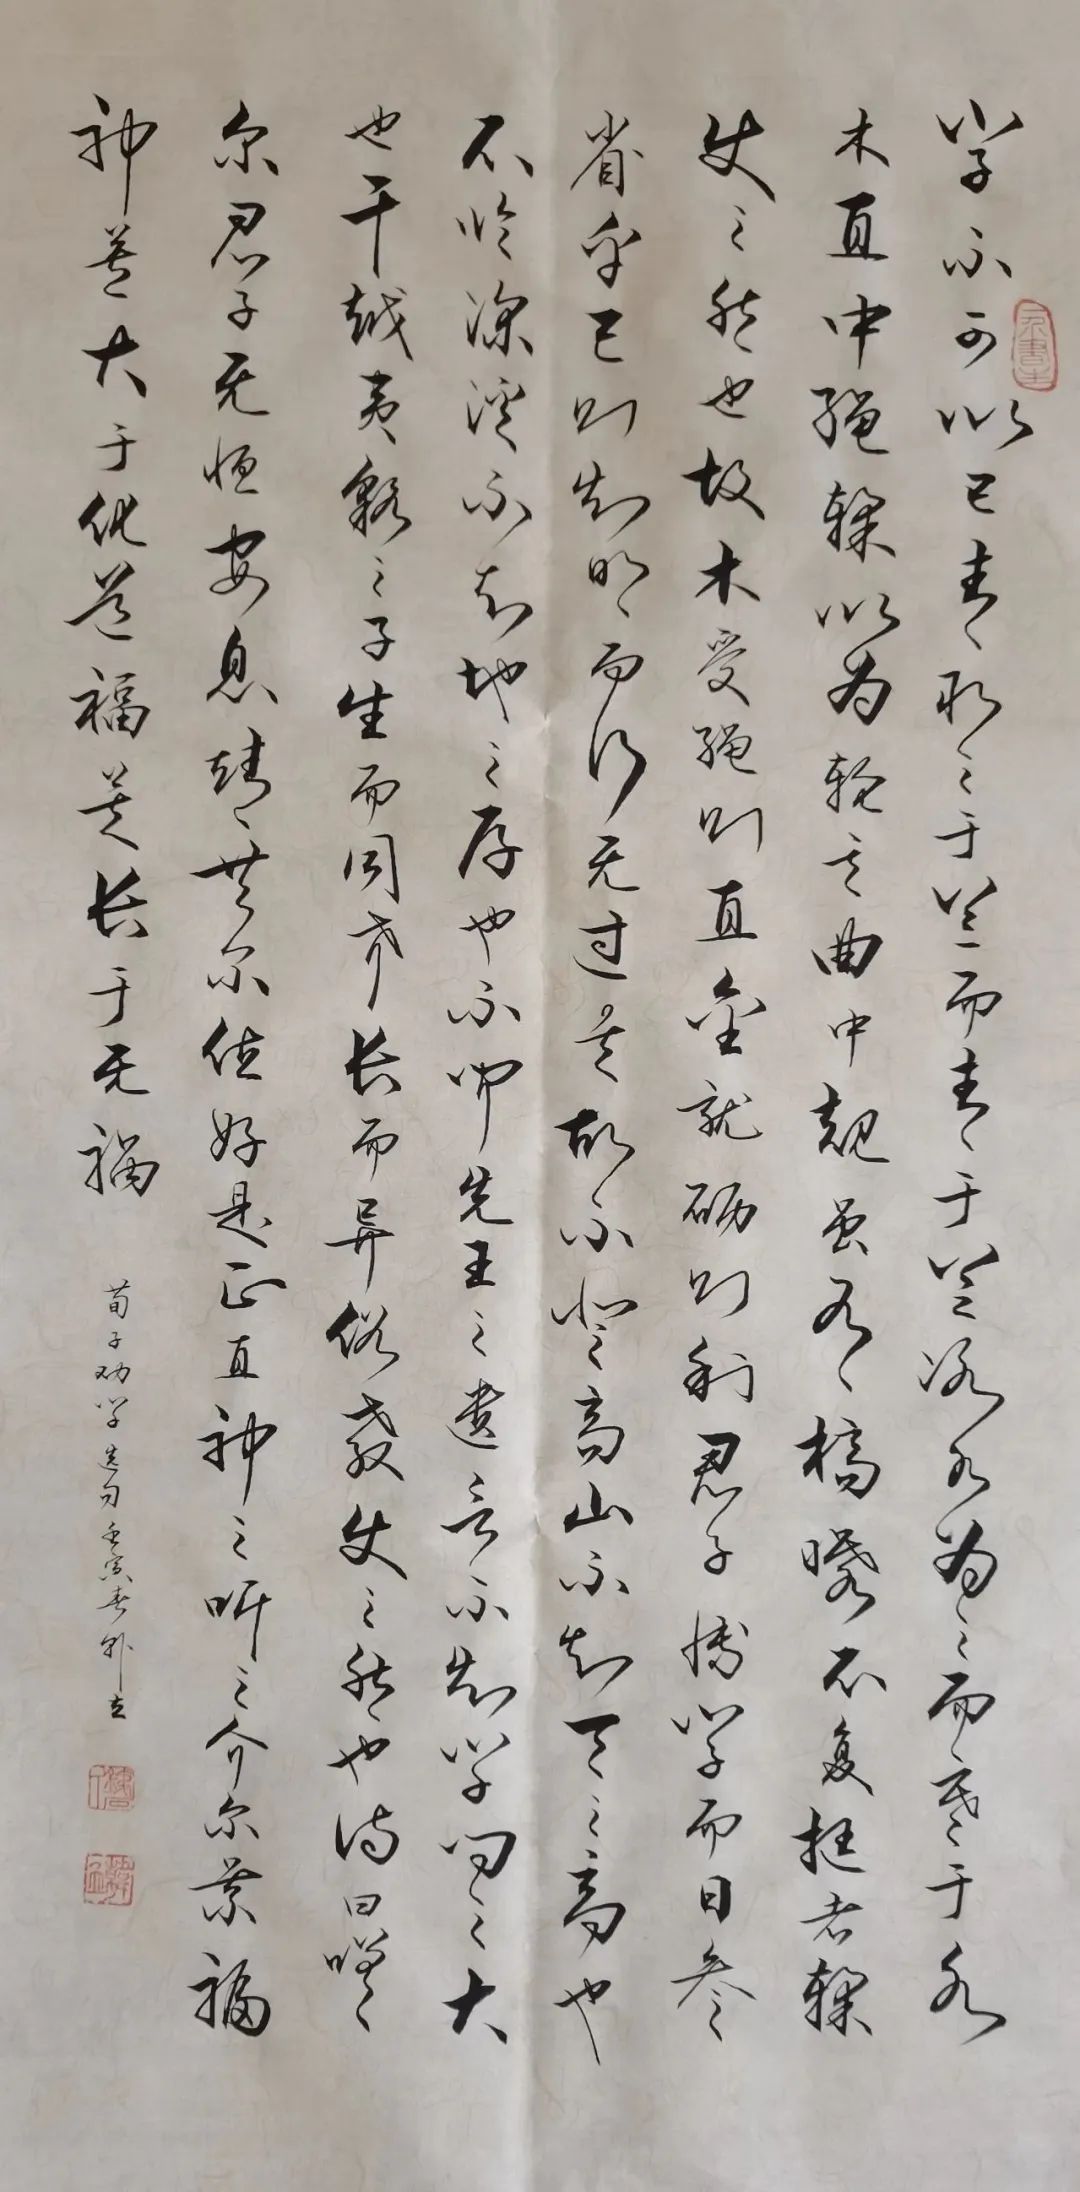 学不可以已青取之于蓝而青于蓝冰水为之而寒于水
木直中绳輮以为轮其曲中规虽有槁暴不复挺者輮
使之然也故木受绳则直金就砺则利君子博学而日参
省乎己则知明而行无过矣故不登高山不知天之高也
不临深溪不知地之厚也不闻先王之遗言不知学问之大
也干越夷貉之子生而同声长而异俗教使之然也诗曰嗟
尔君子无恒安息靖共尔位好是正直神之听之介尔景福
神莫大于化道福莫长于无祸
荀子劝学选句壬寅春